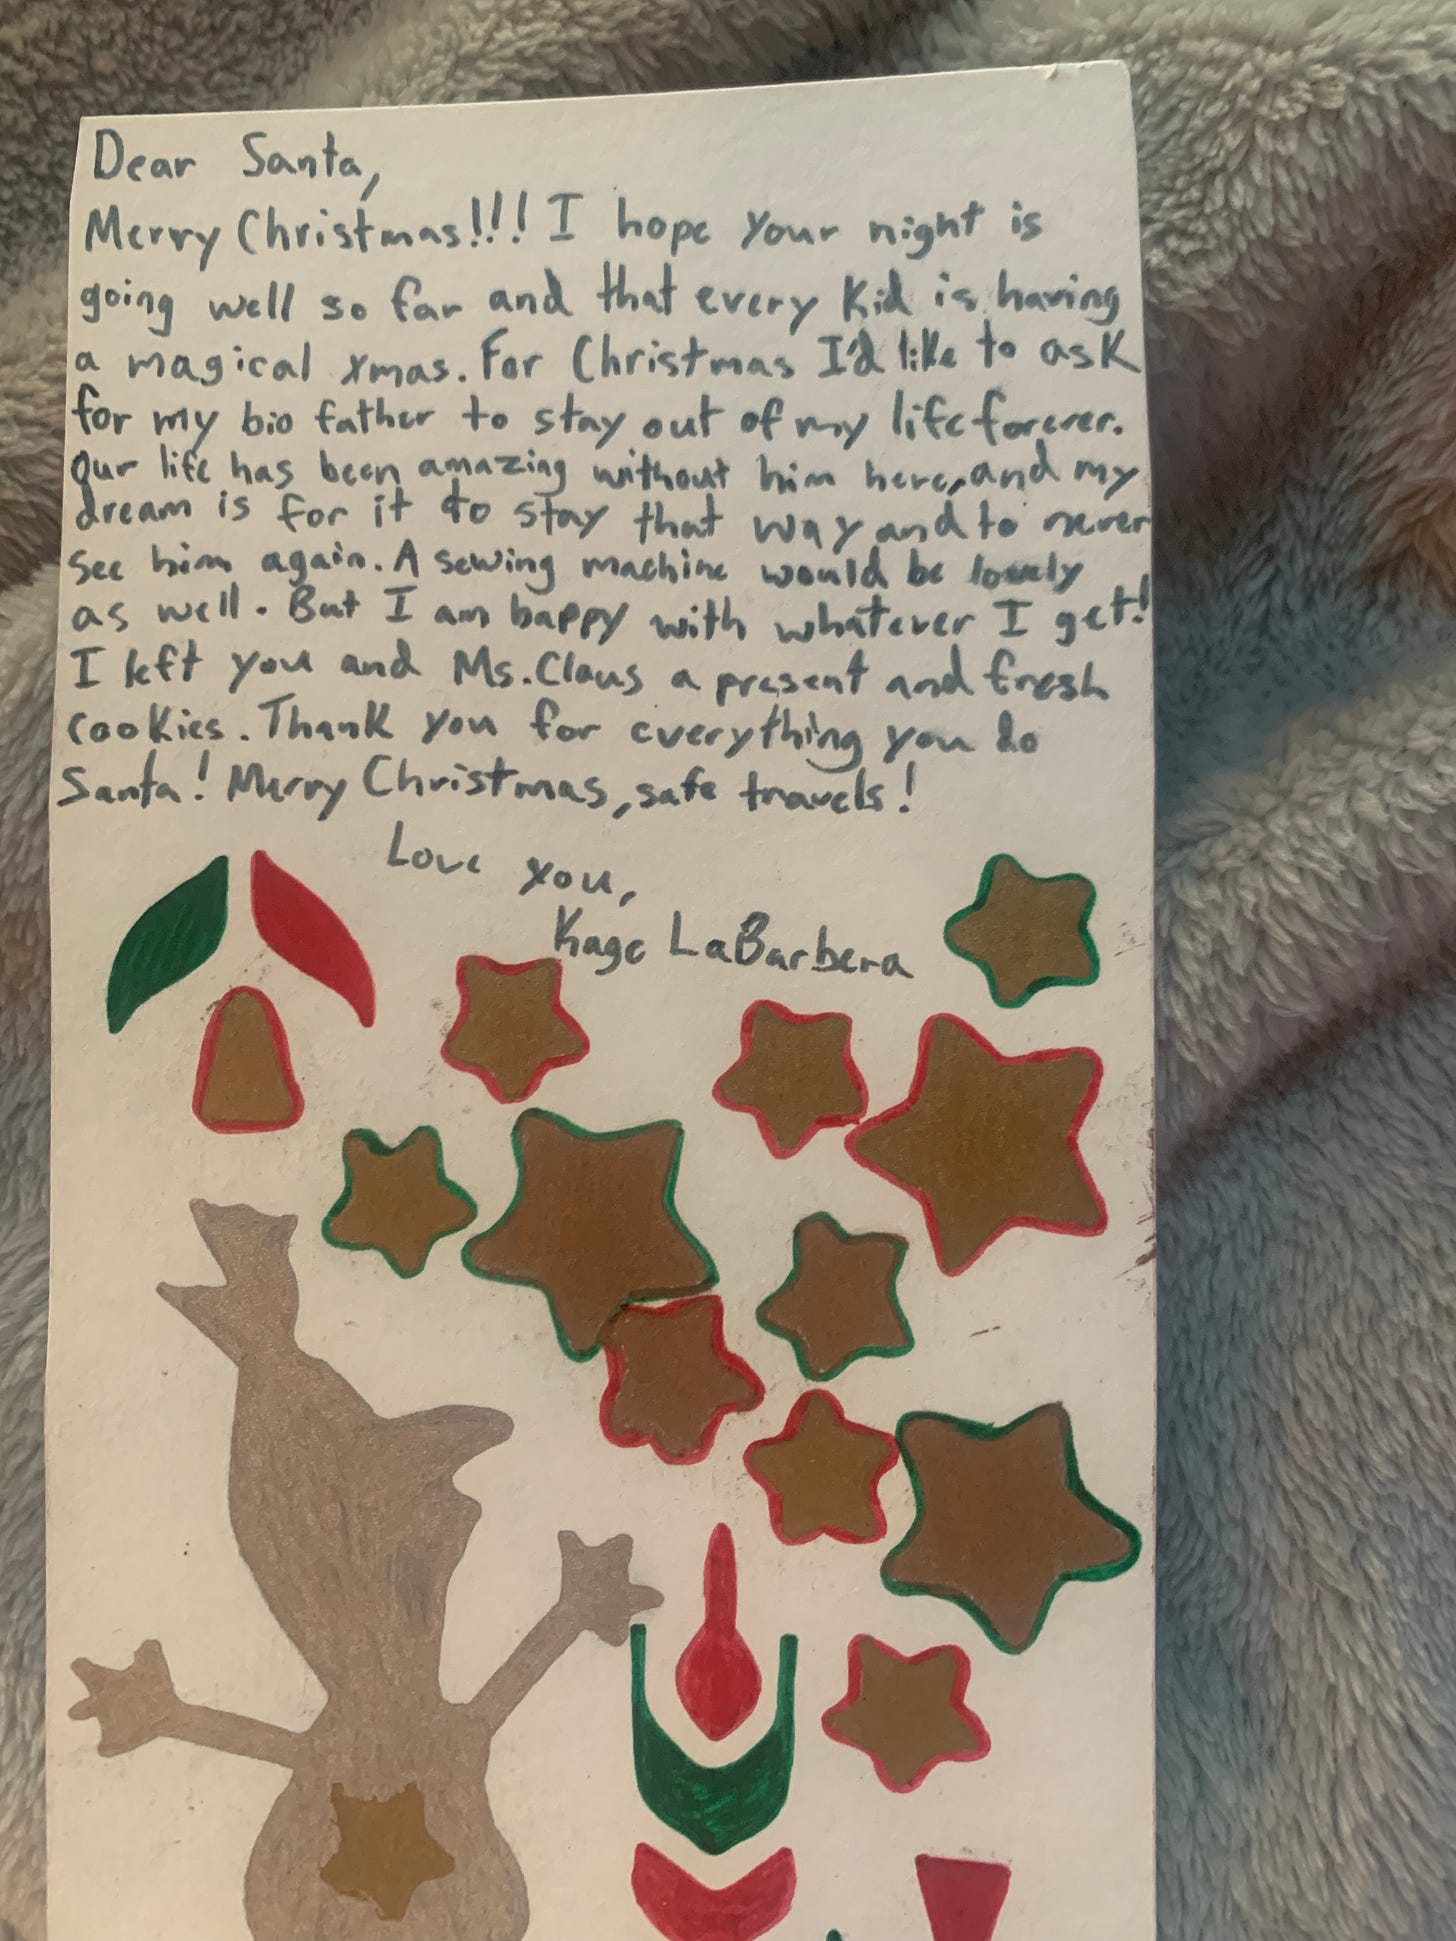 Dear Santa,
Merry Christmas!!! I hope your night is
going well so far and that every Kid is having
a magical xmas. For Christmas I'd like to ask
for my bio father to stay out of my life forever.
Our life has been amazing without him here, and my
dream is for it to stay that way and to never
see him again. A sewing machine would be lovely
as well. But I am happy with whatever I get!
I left you and Ms. Claus a present and fresh
cookies. Thank you for everything you do
Santa! Merry Christmas, safe travels!
Love you,
Kage LaBarbera